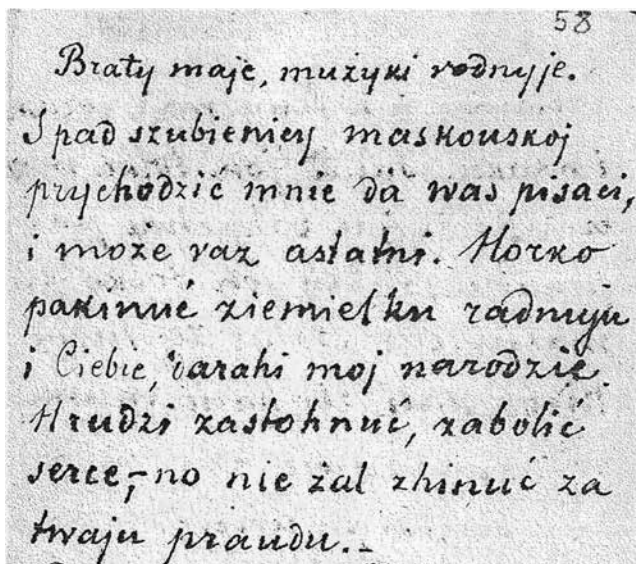 58
Braty maje, mużyki rodnyje.
Spad szubienicy maskouskoj
prychodzić mnie da was pisaci,
i może raz astatni. Horko
pakinuć ziemielku radnuju
i Ciebie, darahi moj narodzie.
Hrudzi zastohnuć, zabolić
serce,—no nie żal zhinuć za
twaju praudu.—